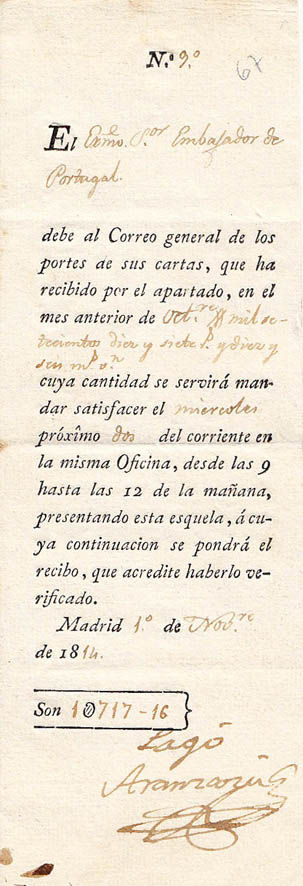 N.º 9.º
67
El Exmo. S.or Embajador de
Portugal.
debe al Correo general de los
portes de sus cartas, que ha
recibido por el apartado, en el
mes anterior de Oct.re mil se-
tecientos diez y siete r.s y diez y
seis m.s v.n
cuya cantidad se servirá man-
dar satisfacer el miercoles
próximo dos del corriente en
la misma Oficina, desde las 9
hasta las 12 de la mañana,
presentando esta esquela, á cu-
ya continuacion se pondrá el
recibo, que acredite haberlo ve-
rificado.
Madrid 1.º de Nob.re
de 1814.
Son 1717-16
Pagó
Aranzazu